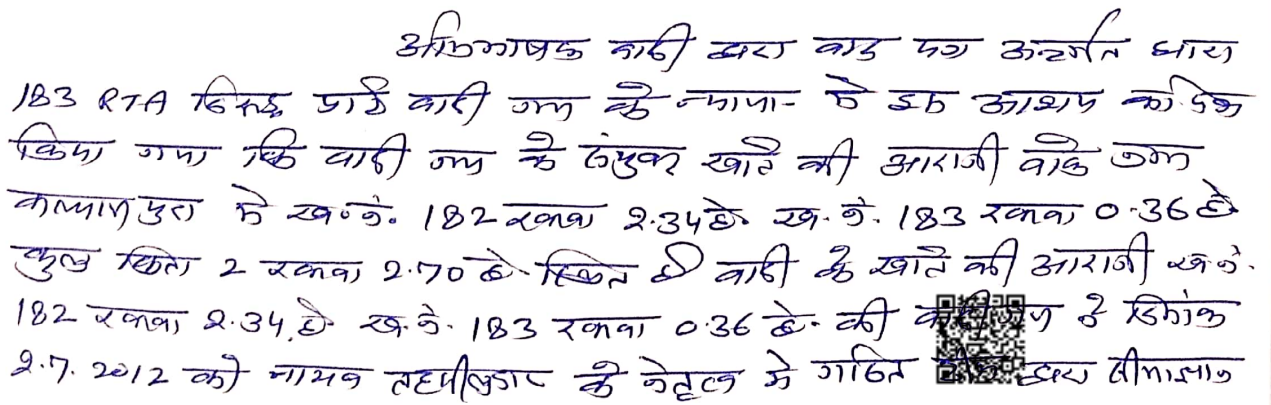 अभिभाषक वादी द्वारा वाद पत्र अन्तर्गत धारा
183 RTA विरूद्ध प्रति वादी गण के न्याया- मे इस आशय का पेश
किया गया कि वादी गण के संयुक्त खाते की आराजी वाके ग्राम
कल्याणपुरा मे ख.नं. 182 रकबा 2.34 है. ख.नं. 183 रकबा 0.36 है
कुल किता 2 रकबा 2.70 है. स्थित है वादी के खाते की आराजी ख.नं.
182 रकबा 2.34 है ख.नं. 183 रकबा 0.36 है. की ने दिनांक
2.7.2012 को नायब तहसीलदार के नेतृत्व मे गठित द्वारा सीमाज्ञान